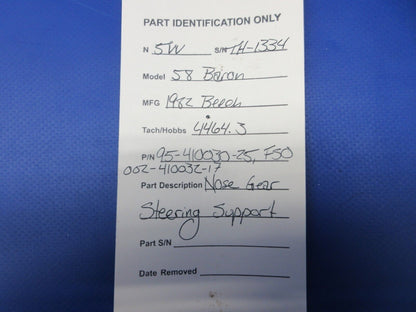 PART IDENTIFICATION ONLY
N 5W S/N TH-1334
Model 58 Baron
MFG 1982 Beech
Tach/Hobbs 4464.3
P/N 95-410030-25, F50
002-410032-17
Part Description Nose Gear
Steering Support
Part S/N
Date Removed